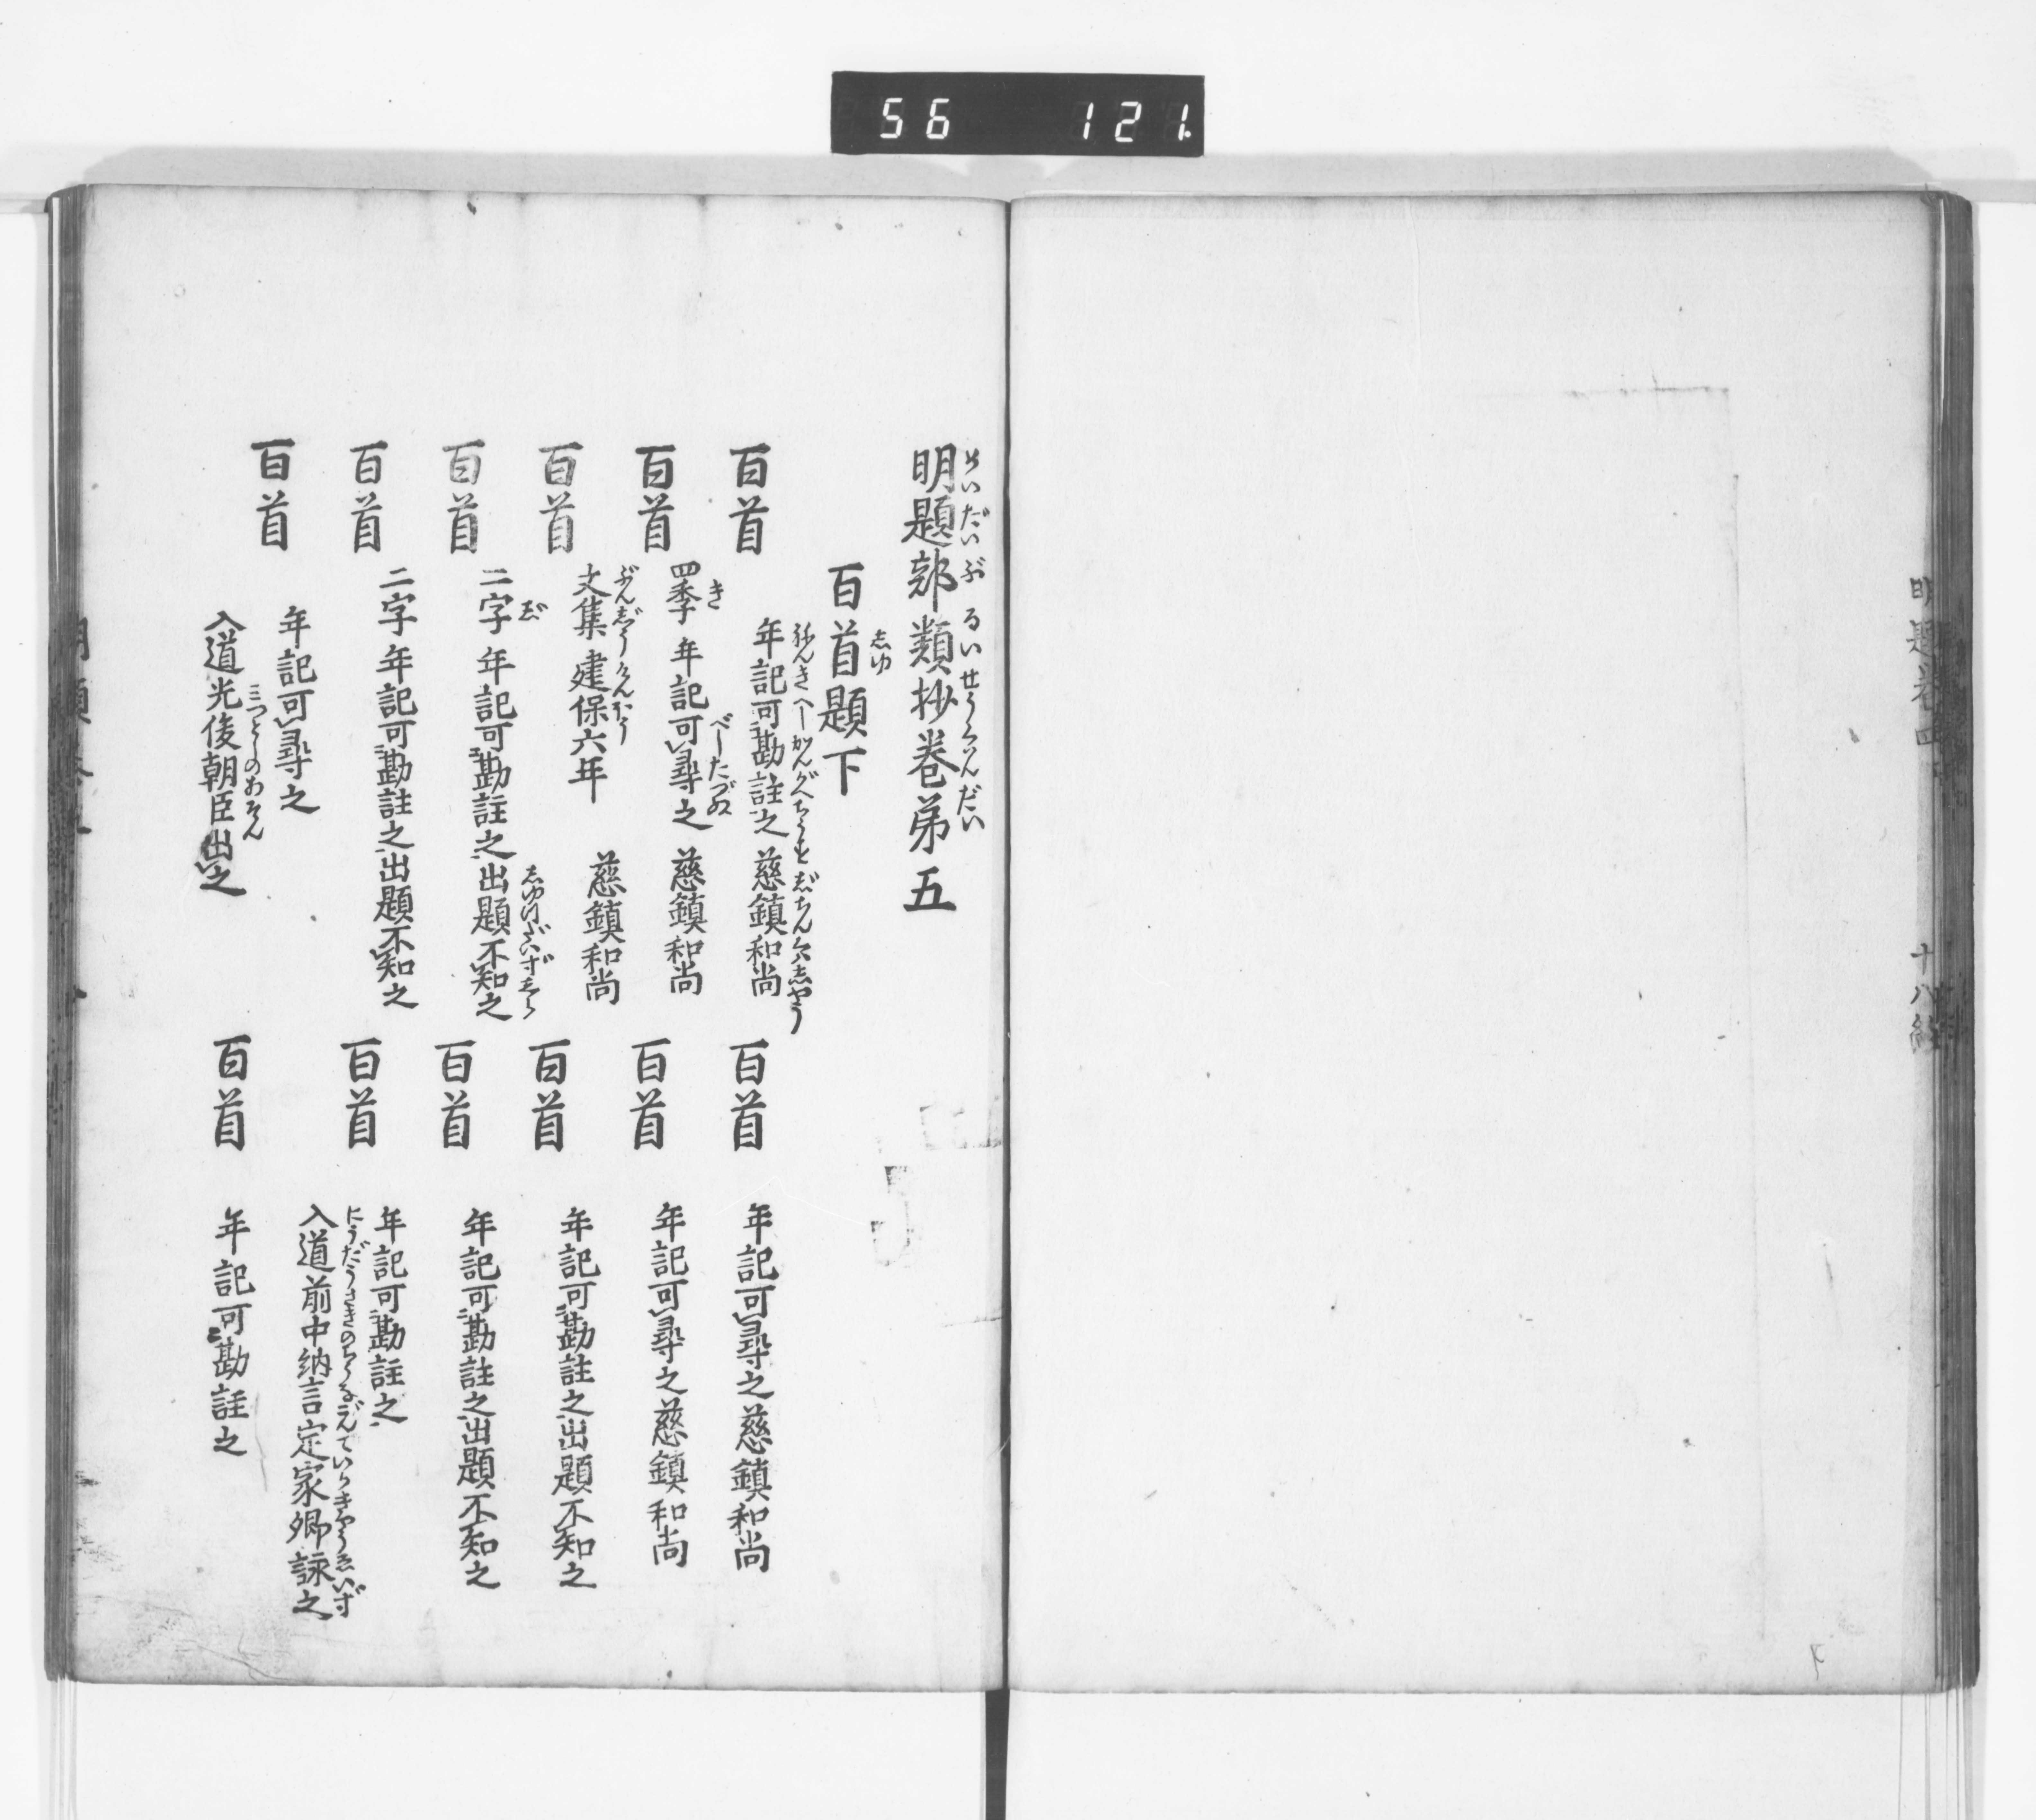 56 121
明題巻四
十八終
明題部類抄巻第五
百首題下
百首 年記可勘註之 慈鎮和尚
百首 年記可尋之 慈鎮和尚
百首 四季 年記可尋之 慈鎮和尚
百首 年記可尋之 慈鎮和尚
百首 文集 建保六年 慈鎮和尚
百首 年記可勘註之 出題不知之
百首 二字 年記可勘註之 出題不知之
百首 年記可勘註之 出題不知之
百首 二字 年記可勘註之 出題不知之
百首 年記可勘註之
入道前中納言定家卿詠之
百首 年記可尋之
入道光俊朝臣出之
百首 年記可勘註之